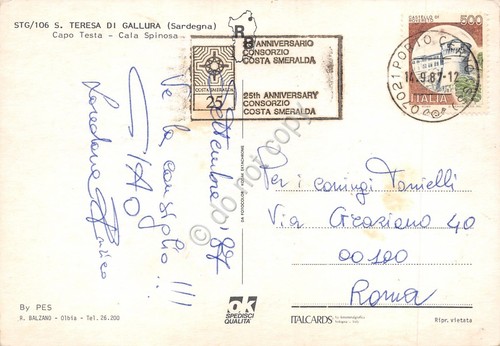 STG/106 S. TERESA DI GALLURA (Sardegna)
Capo Testa - Cala Spinosa
ANNIVERSARIO
CONSORZIO
COSTA SMERALDA
COSTA SMERALDA
25
25th ANNIVERSARY
CONSORZIO
COSTA SMERALDA
CASTELLO DI
500
ITALIA
14.9.87-12
07021 PORTO
Settembre '87
Ve la consiglio!!!
CIAO
Loredana
Per i coniugi Tonielli
Via Graziano 40
00100
Roma
do not copy
By PES
R. BALZANO - Olbia - Tel. 26.200
OK
SPEDISCI
QUALITA'
ITALCARDS
Ripr. vietata